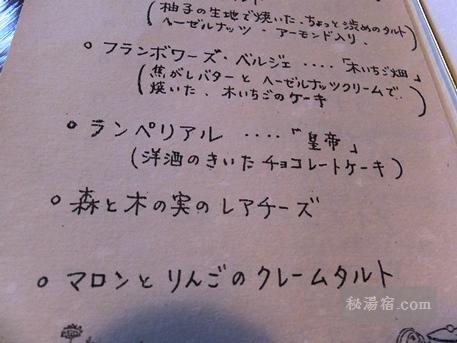 (柚子の生地で焼いた、ちょっと渋めのタルト
ヘーゼルナッツ・アーモンド入り.)
○ フランボワーズ・ベルジェ ‥‥「木いちご畑」
(焦がしバターと ヘーゼルナッツクリームで‥
焼いた、木いちごのケーキ)
○ ランペリアル ‥‥「皇帝」
(洋酒のきいた チョコレートケーキ)
○ 森と木の実のレアチーズ
○ マロンと りんごの クレームタルト
秘湯宿.com